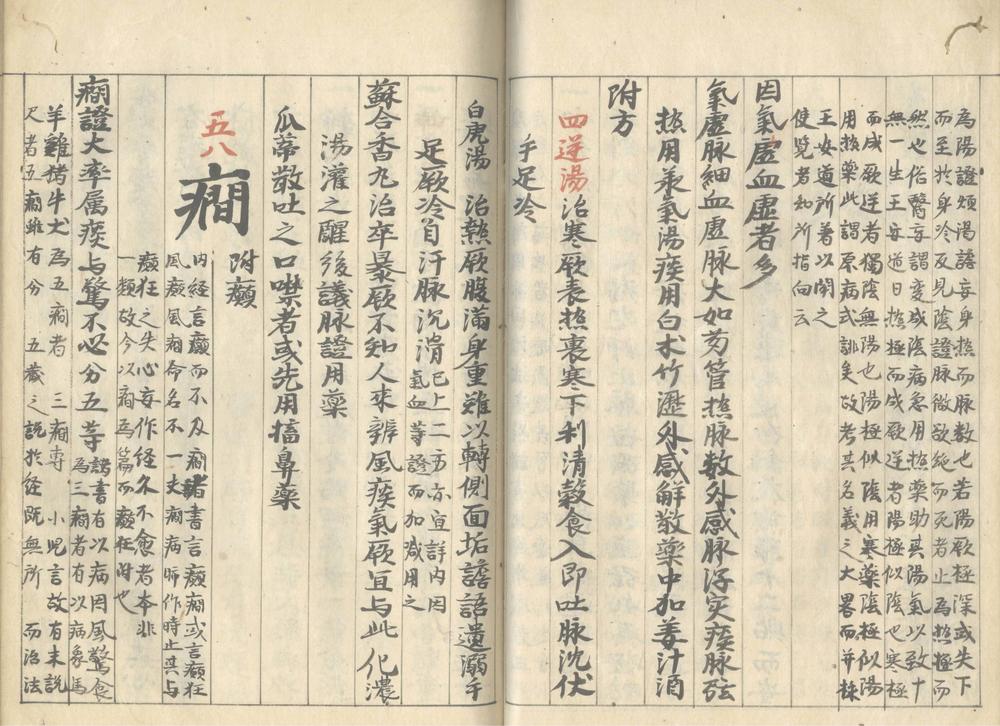 為陽證煩渴譫妄身热而脉数也若陽厥極深或失下
而至於身冷反見陰證脉微欲絕而死者止為热極而
然也俗醫妄謂變成陰病急用热藥助其陽氣以致十
無一生王安道曰热極而成厥逆者陽極似陰也寒極
而成厥逆者獨陰無陽也陽極似陰用寒藥陰極似陽
用热藥此謂原病式訓矣故考其名義之大畧而并採
王安道所著以闢之
使覽者知所指向云
因氣虛血虛者多
氣虛脉細血虛脉大如芤管热脉数外感脉浮实痰脉弦
热用承氣湯痰用白朮竹瀝外感解散藥中加姜汁酒
附方
四逆湯治寒厥表热裏寒下利清穀食入即吐脉沉伏
手足冷
白虎湯 治熱厥腹滿身重難以轉側面垢譫語遺溺手
足厥冷自汗脉沉滑已上二方亦宜詳内因
氣血等證而加减用之
蘇合香丸治卒暴厥不知人未辨風痰氣厥宜与此化濃
湯灌之醒後議脉證用藥
瓜蒂散吐之口噤者或先用搐鼻藥
五八
癇
附癲
内經言癲而不及癇諸書言癲癇或言癲狂
風癲風癇命名不一夫癇病時作時止其与
癲狂之失心妄作経久不愈者本非
一類故今以癇爲篇而癲狂附也
癇證大率属痰与驚不必分五等諸書有以病因風驚食
為三癇者有以病象馬
羊雞猪牛犬為五癇者 三癇専 小児言故有未説
尺者五癇雖有分 五蔵之説於経既無所 而治法